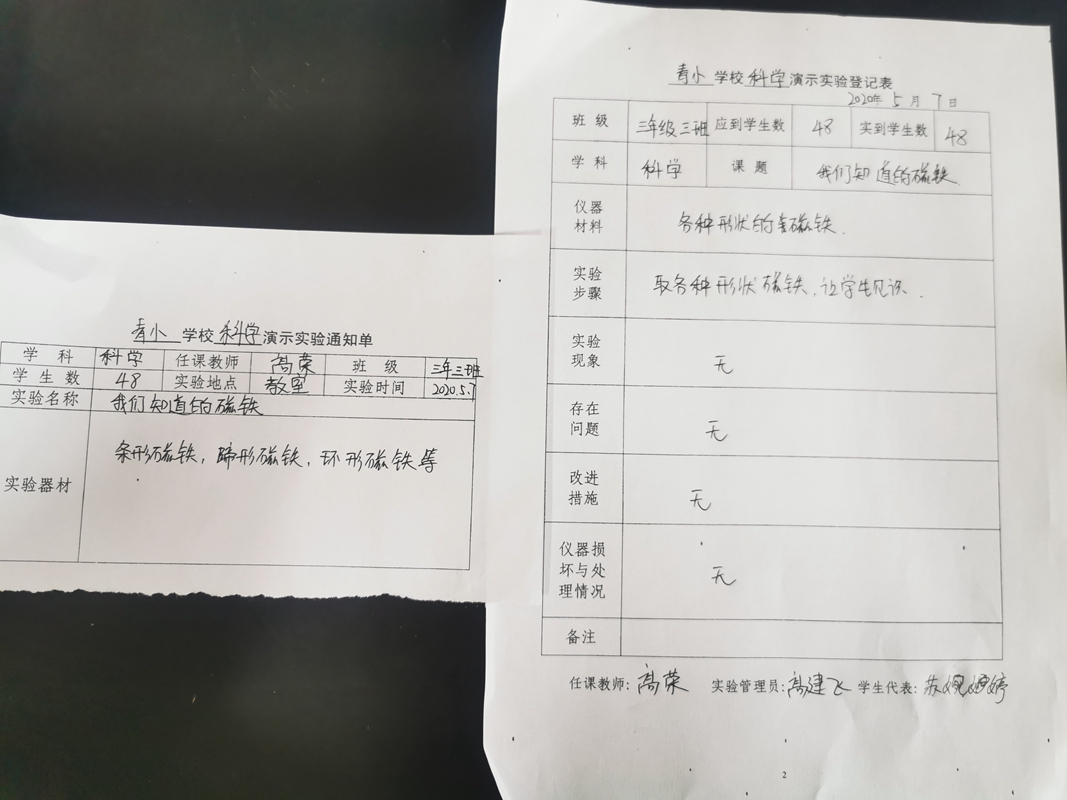 青小 学校 科学 演示实验通知单
学 科 科学 任课教师 高荣 班 级 三年三班
学 生 数 48 实验地点 教室 实验时间 2020.5.7
实验名称 我们知道的磁铁
实验器材 条形磁铁，蹄形磁铁，环形磁铁等
青小 学校 科学 演示实验登记表
2020年 5 月 7 日
班 级 三年级三班 应到学生数 48 实到学生数 48
学 科 科学 课 题 我们知道的磁铁.
仪器
材料
各种形状的磁铁.
实验
步骤
取各种形状磁铁，让学生见识.
实验
现象
无
存在
问题
无
改进
措施
无
仪器损
坏与处
理情况
无
备注
任课教师: 高荣 实验管理员: 高建飞 学生代表: 苏 婷
2